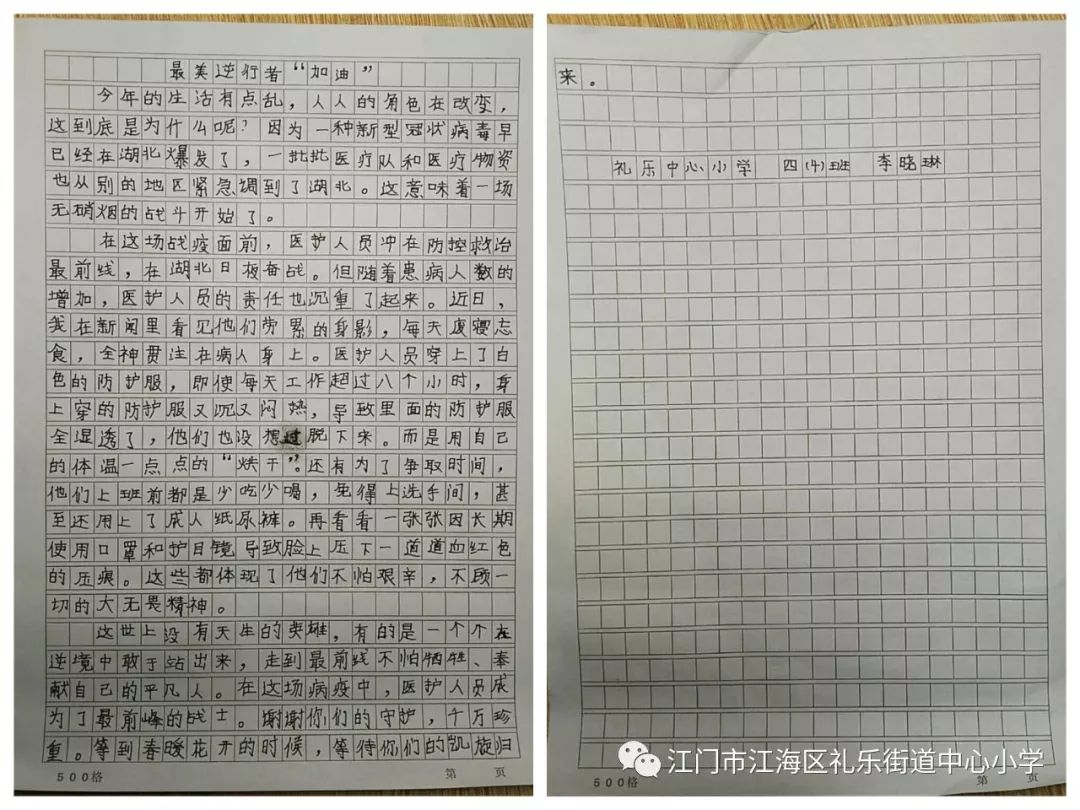 最美逆行者“加油”
今年的生活有点乱，人人的角色在改变，
这到底是为什么呢？因为一种新型冠状病毒早
已经在湖北爆发了，一批批医疗队和医疗物资
也从别的地区紧急调到了湖北。这意味着一场
无硝烟的战斗开始了。
在这场战疫面前，医护人员冲在防控救治
最前线，在湖北日夜奋战。但随着患病人数的
增加，医护人员的责任也沉重了起来。近日，
我在新闻里看见他们劳累的身影，每天废寝忘
食，全神贯注在病人身上。医护人员穿上了白
色的防护服，即使每天工作超过八个小时，身
上穿的防护服又沉又闷热，导致里面的防护服
全湿透了，他们也没想过脱下来。而是用自己
的体温一点点的“烘干”。还有为了争取时间，
他们上班前都是少吃少喝，免得上洗手间，甚
至还用上了成人纸尿裤。再看看一张张因长期
使用口罩和护目镜导致脸上压下一道道血红色
的压痕。这些都体现了他们不怕艰辛，不顾一
切的大无畏精神。
这世上没有天生的英雄，有的是一个个在
逆境中敢于站出来，走到最前线不怕牺牲、奉
献自己的平凡人。在这场病疫中，医护人员成
为了最前峰的战士。谢谢你们的守护，千万珍
重。等到春暖花开的时候，等待你们的凯旋归
500格 第 页
来。
礼乐中心小学 四(4)班 李晓琳
500格 第 页
江门市江海区礼乐街道中心小学